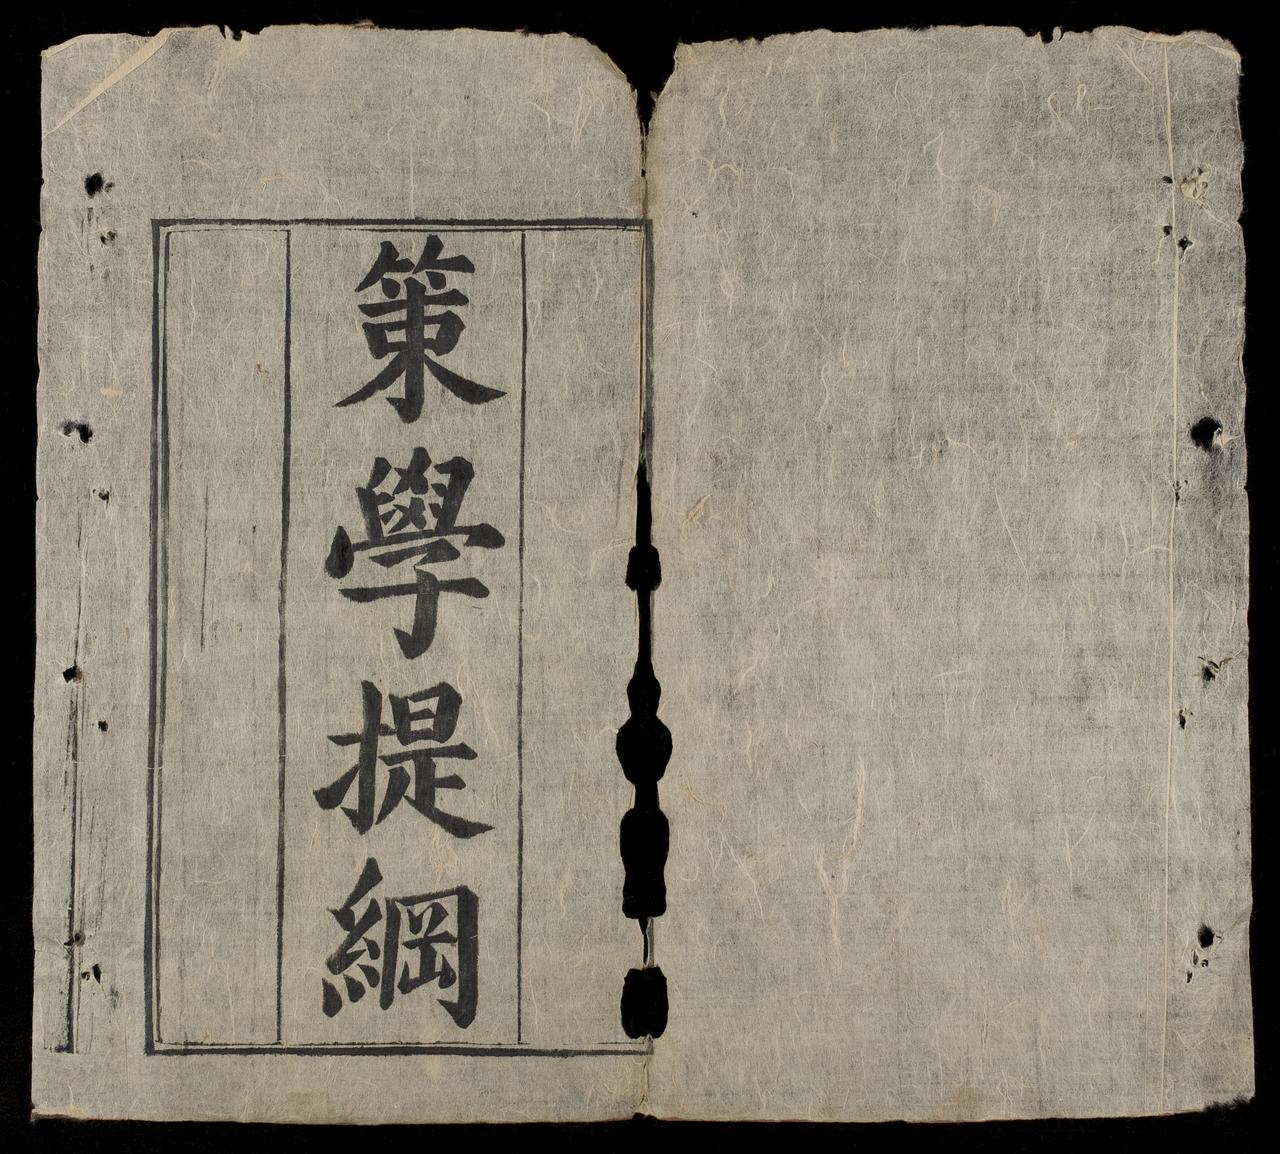 策學提綱